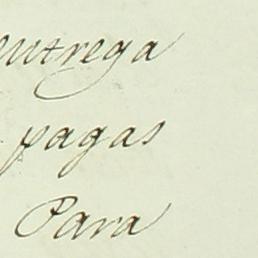 entrega
pagas
Para